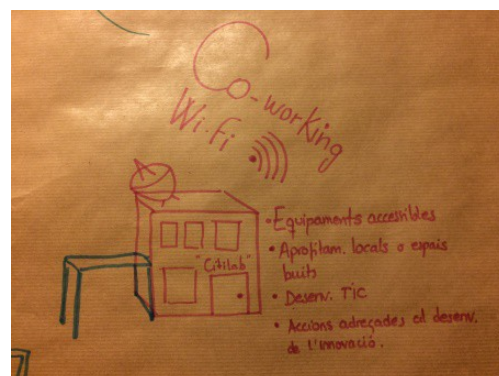 Co-working
Wi.Fi
"Citilab"
• Equipaments accessibles
• Aprofitam. locals o espais
buits
• Desenv. TIC
• Accions adreçades al desenv.
de l'innovació.